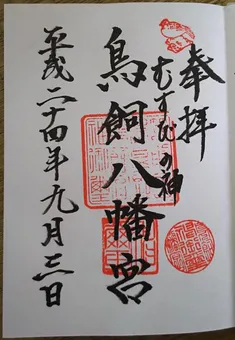 奉拝
むすびの神
鳥飼八幡宮
平成二十四年九月三日